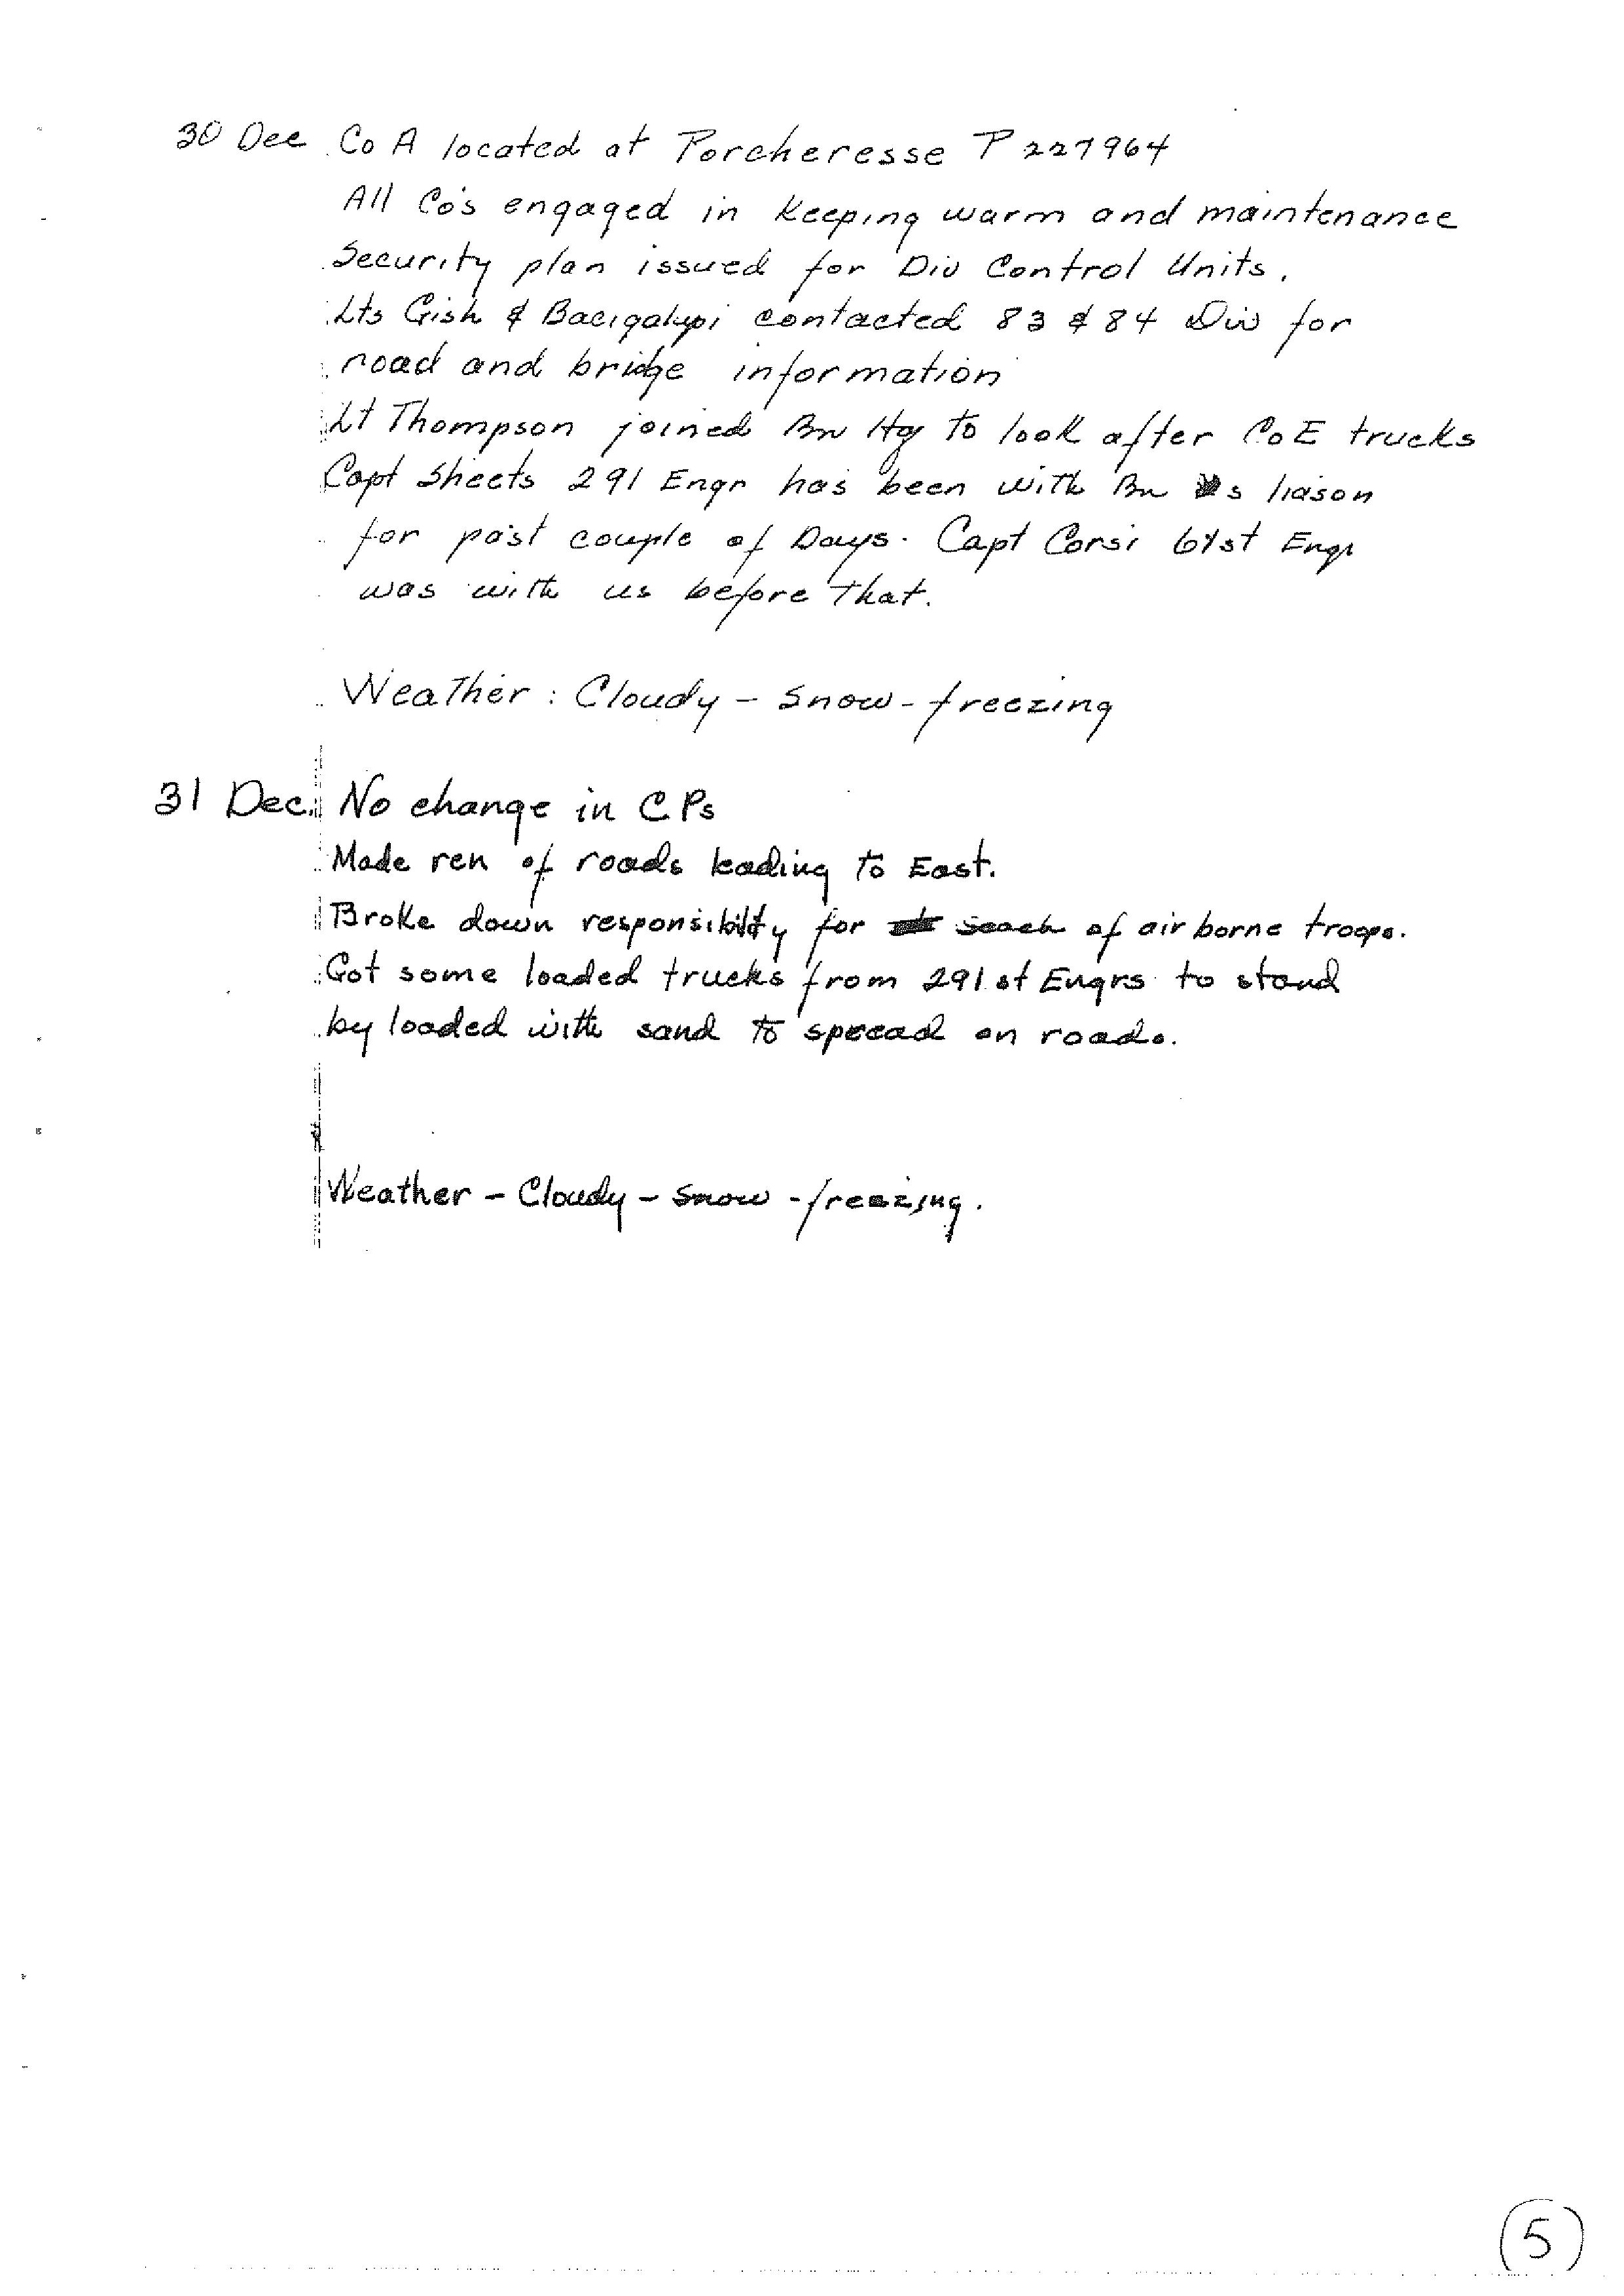 30 Dec Co A located at Porcheresse P 227964
All Co's engaged in keeping warm and maintenance
Security plan issued for Div Control Units.
Lts Gish & Bacigalupi contacted 83 & 84 Div for
road and bridge information
Lt Thompson joined Bn Hq to look after Co E trucks
Capt Sheets 291 Engr has been with Bn as liason
for past couple of Days. Capt Corsi 61st Engr
was with us before That.
Weather : Cloudy - Snow - freezing
31 Dec. No change in CPs
Made ren of roads leading to East.
Broke down responsibility for of airborne troops.
Got some loaded trucks from 291st Engrs to stand
by loaded with sand to spread on roads.
Weather - Cloudy - Snow - freezing.
5